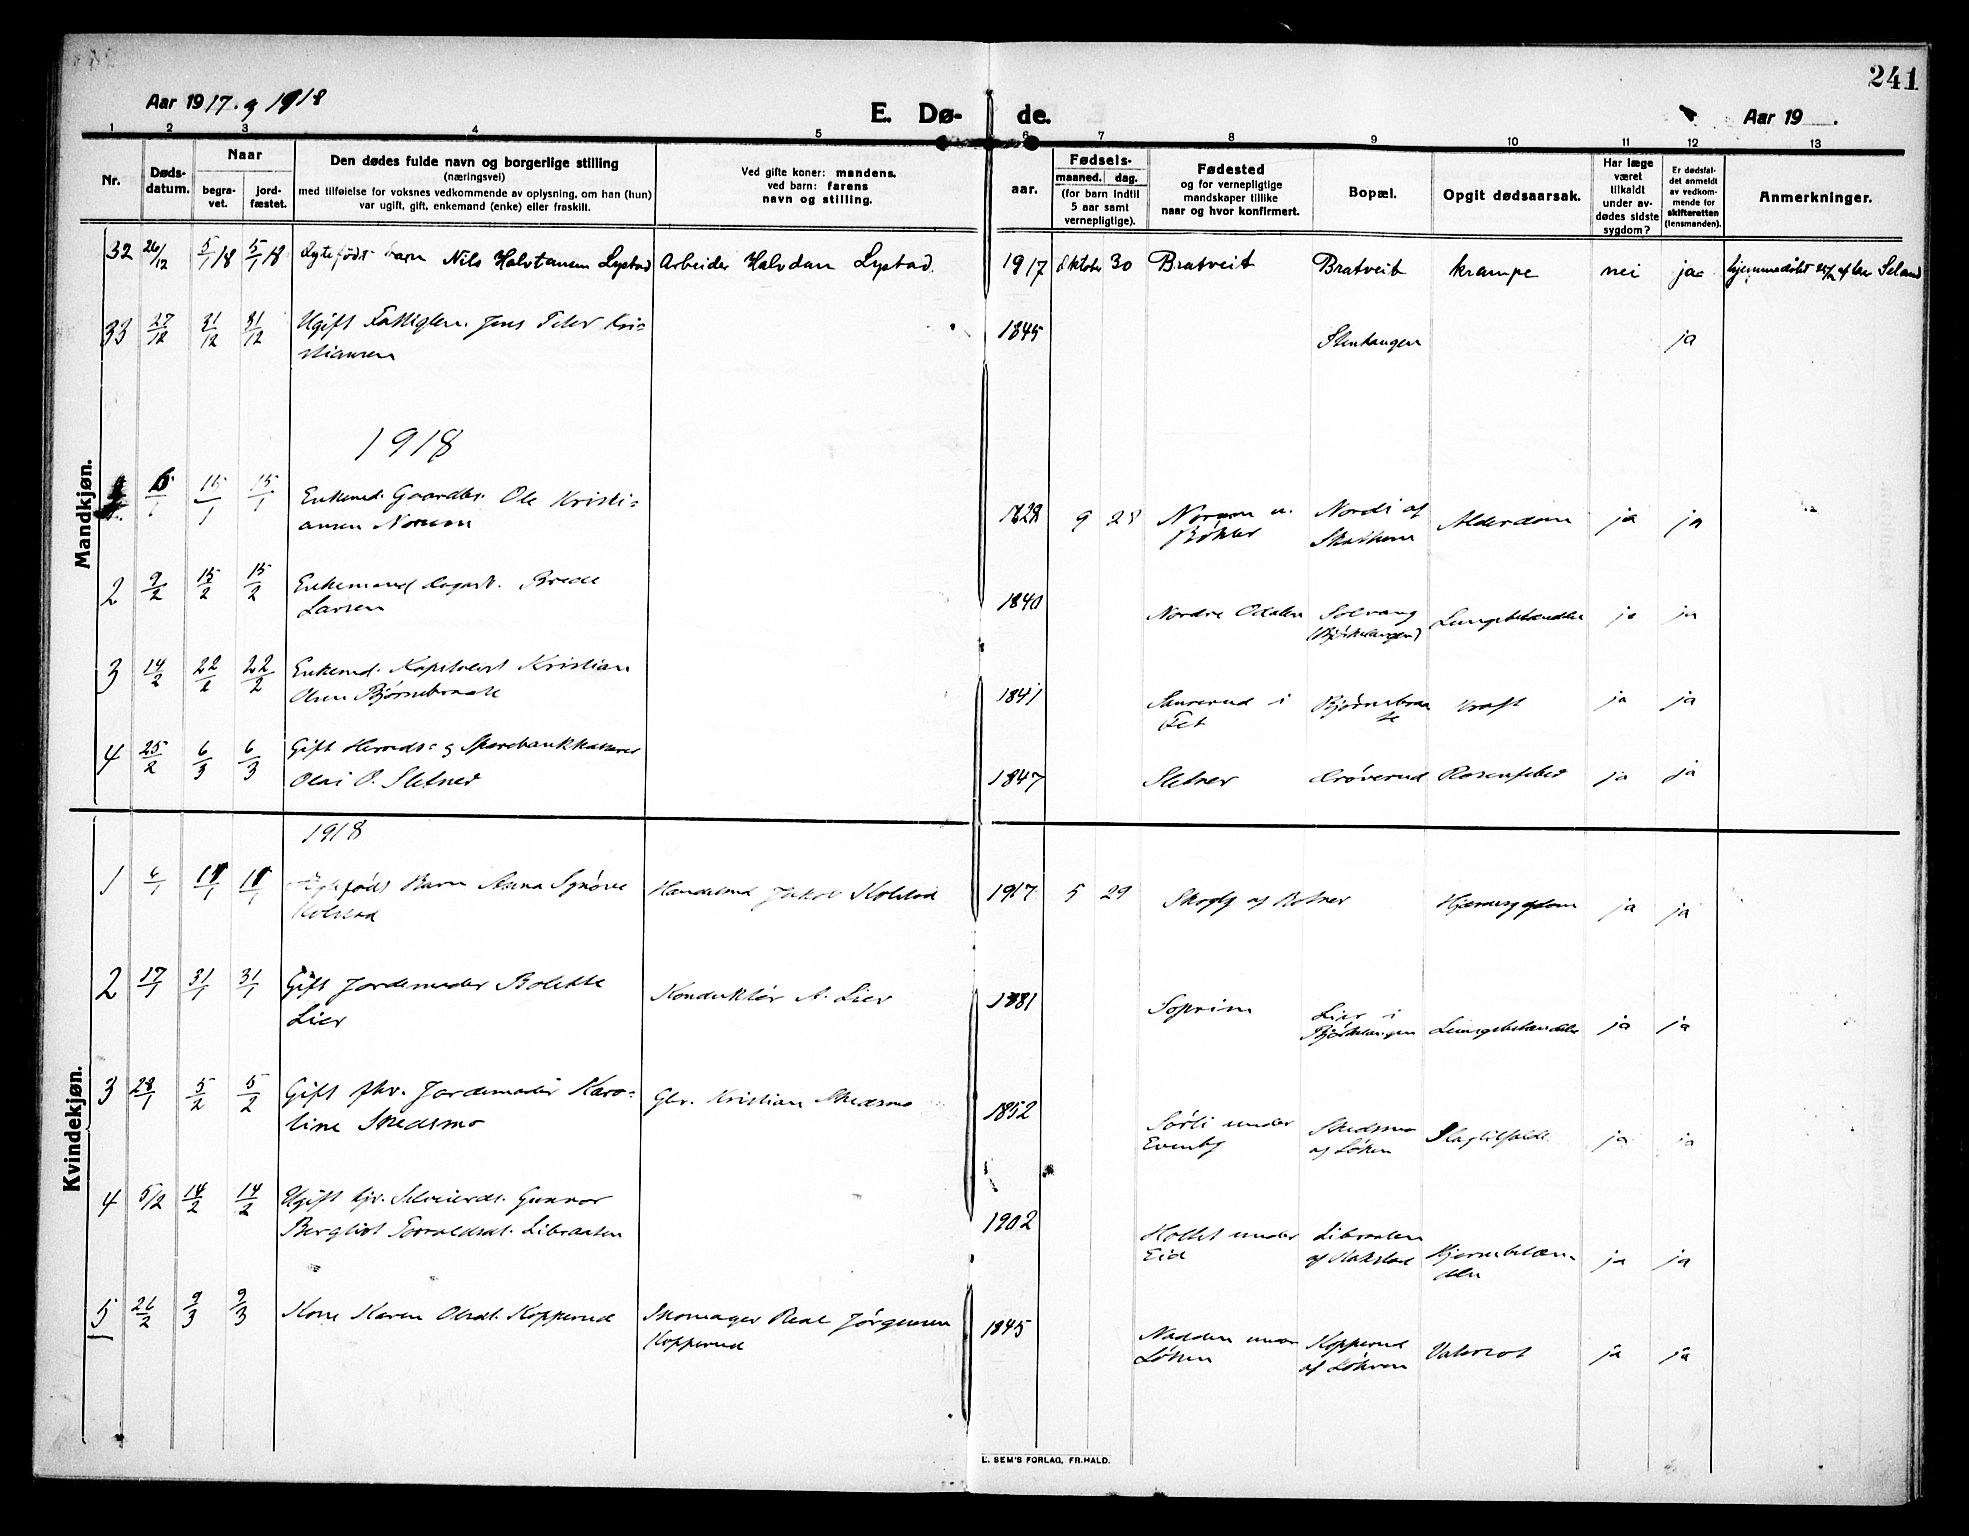 241
Aar 1917. og 1918
E. Dø- de.
Aar 19 .
1 2 3 4 5 6 7 8 9 10 11 12 13
Nr.
Døds-
datum.
Naar
begra-
vet.
jord-
fæstet.
Den dødes fulde navn og borgerlige stilling
(næringsvei)
med tilføielse for voksnes vedkommende av oplysning, om han (hun)
var ugift, gift, enkemand (enke) eller fraskilt.
Ved gifte koner: mandens,
ved barn: farens
navn og stilling.
aar.
Fødsels-
maaned. dag.
(for barn indtil
5 aar samt
vernepligtige).
Fødested
og for vernepligtige
mandskaper tillike
naar og hvor konfirmert.
Bopæl.
Opgit dødsaarsak.
Har læge
været
tilkaldt
under av-
dødes sidste
sygdom?
Er dødsfal-
det anmeldt
av vedkom-
mende for
skifteretten
(lensmanden).
Anmerkninger.
Mandkjøn.
32 26/12 5/1 18 5/1 18 Egtefødt barn Nils Halvdansen Lystad Arbeider Halvdan Lystad. 1917 Oktober 30 Bratveit Bratveit krampe nei ja hjemmedøbt
33 27/12 31/12 31/12 Ugift Fattiglem. Jens Peter Kri-
stiansen
1845 Stenhaugen ja
1918
15/1 15/1 Enkemd. Gaardbr. Ole Kristi-
ansen Norum
1828 9 28 Norum u. Alderdom ja ja
2 9/2 15/2 15/2 Enkemand Brede
Larsen
1840 Nordre Odalen Solvang
(Bjørkelangen) Lungebetændelse ja ja
3 14/2 22/2 22/2 Enkemd. Kristian
Olsen Bjørnebraate
1841 i
Fet Bjørnebraa
te Kræft ja ja
4 25/2 6/3 6/3 Gift Herreds- og Sparebankkasserer
Olai O. Sletner
1847 Sletner ja ja
Kvindekjøn.
1918
1 6/1 Egtefødt Barn Anna Synøve
Kolstad
Handelsmd Jakob Kolstad 1917 5 29 Skogly af Botner Hjernesygdom ja ja
2 17/1 31/1 31/1 Gift Jordemoder Bolette
Lier
Konduktør A. Lier 1881 Soprim Lier i
Bjørkelangen Lungebetændelse ja ja
3 28/1 5/2 5/2 Gift fhv. Jordemoder Karo-
line Skedsmo
Gbr. Kristian Skedsmo 1852 Sørli under
Evenby Skedsmo
af Løken Slagtilfælde ja ja
4 5/2 14/2 14/2 Ugift Gunvor
Bergliot Toraldsdt. Libraaten
1902 under
Eid Libraaten
af Kakstad Hjernebetæn-
delse ja ja
5 26/2 9/3 9/3 Kone Karen Olsdt. Kopperud Skomager Jørgensen
Kopperud
1845 Nadden under
Løken Kopperud
af Løkren Vatersot ja ja
E. SEM'S FORLAG, FR.HALD.